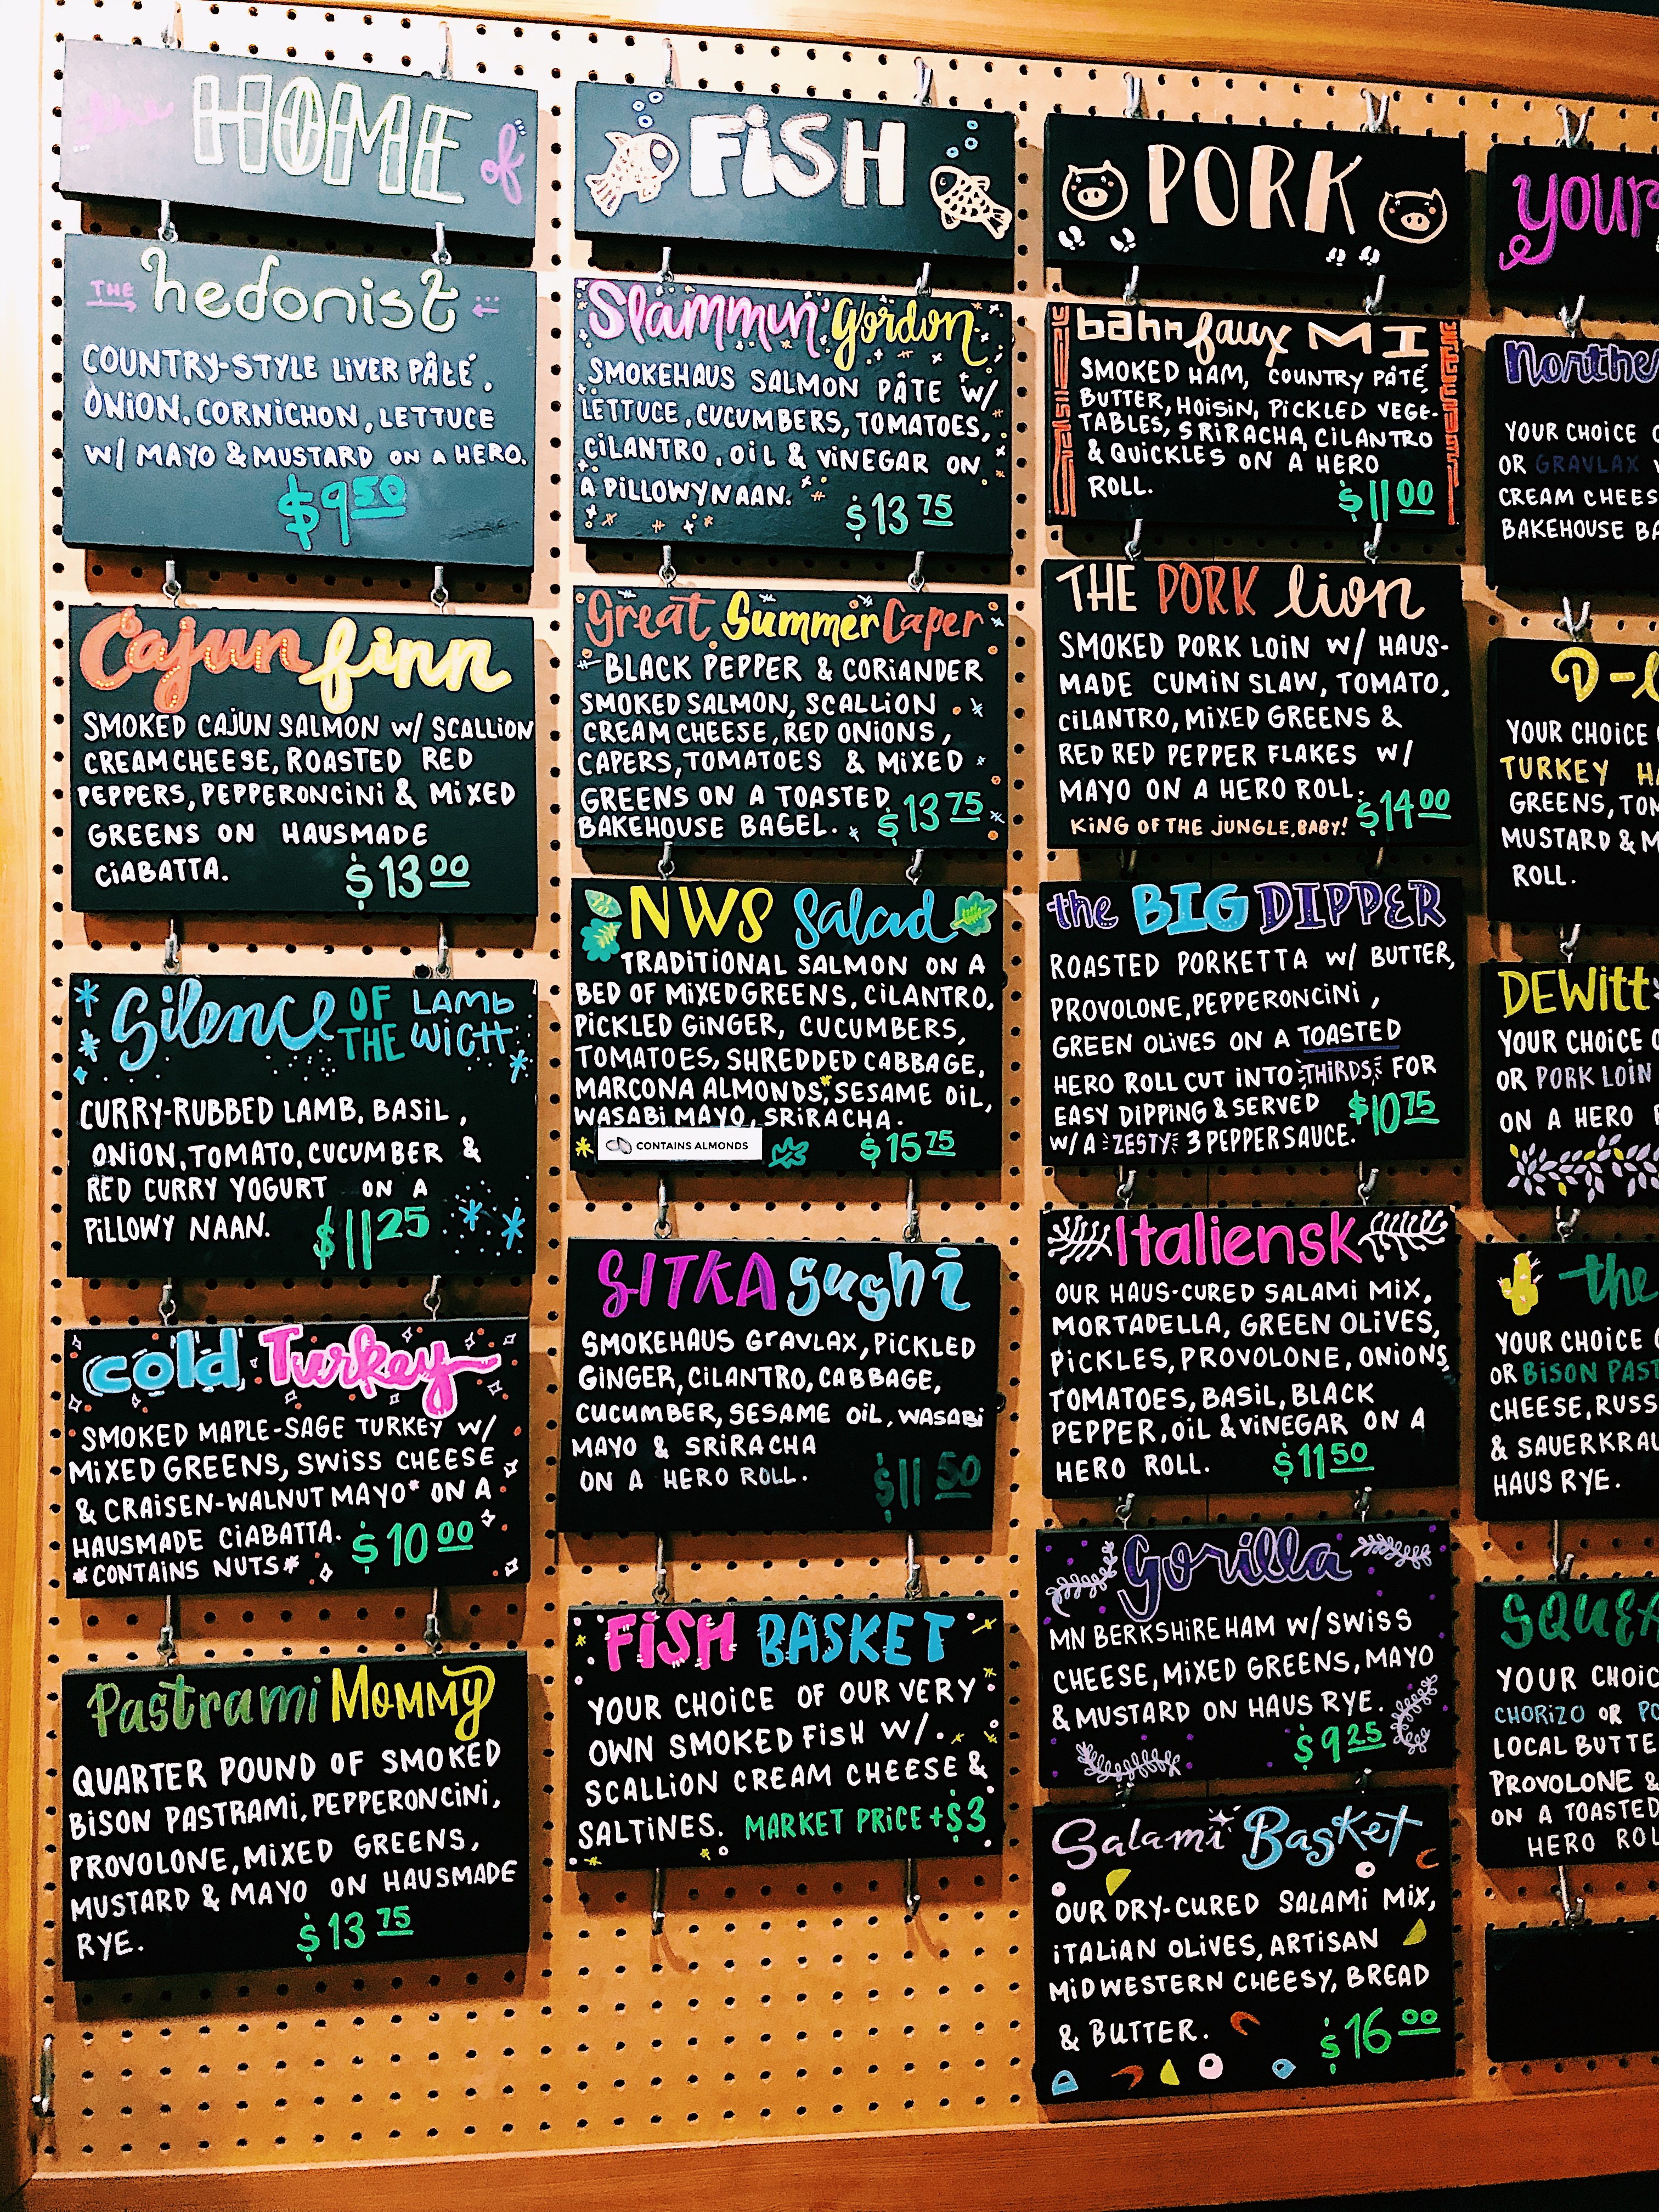 the HOME of
THE hedonist
COUNTRY-STYLE LIVER PÂTÉ,
ONION, CORNICHON, LETTUCE
W/ MAYO & MUSTARD ON A HERO.
$9 50
Cajun finn
SMOKED CAJUN SALMON W/ SCALLION
CREAM CHEESE, ROASTED RED
PEPPERS, PEPPERONCINI & MIXED
GREENS ON HAUSMADE
CIABATTA. $13 00
Silence OF THE LAMB WICH
CURRY-RUBBED LAMB, BASIL,
ONION, TOMATO, CUCUMBER &
RED CURRY YOGURT ON A
PILLOWY NAAN. $11 25
cold Turkey
SMOKED MAPLE-SAGE TURKEY W/
MIXED GREENS, SWISS CHEESE
& CRAISEN-WALNUT MAYO* ON A
HAUSMADE CIABATTA. $10 00
*CONTAINS NUTS*
Pastrami MOMMY
QUARTER POUND OF SMOKED
BISON PASTRAMI, PEPPERONCINI,
PROVOLONE, MIXED GREENS,
MUSTARD & MAYO ON HAUSMADE
RYE. $13 75
FISH
Slammin' Gordon
SMOKEHAUS SALMON PÂTE W/
LETTUCE, CUCUMBERS, TOMATOES,
CILANTRO, OIL & VINEGAR ON
A PILLOWY NAAN. $13 75
Great Summer Caper
BLACK PEPPER & CORIANDER
SMOKED SALMON, SCALLION
CREAM CHEESE, RED ONIONS,
CAPERS, TOMATOES & MIXED
GREENS ON A TOASTED
BAKEHOUSE BAGEL. $13 75
NWS Salad
TRADITIONAL SALMON ON A
BED OF MIXED GREENS, CILANTRO,
PICKLED GINGER, CUCUMBERS,
TOMATOES, SHREDDED CABBAGE,
MARCONA ALMONDS*, SESAME OIL,
WASABI MAYO, SRIRACHA.
* CONTAINS ALMONDS $15 75
SITKA sushi
SMOKEHAUS GRAVLAX, PICKLED
GINGER, CILANTRO, CABBAGE,
CUCUMBER, SESAME OIL, WASABI
MAYO & SRIRACHA
ON A HERO ROLL. $11 50
FISH BASKET
YOUR CHOICE OF OUR VERY
OWN SMOKED FISH W/
SCALLION CREAM CHEESE &
SALTINES. MARKET PRICE + $3
PORK
bahn faux MI
SMOKED HAM, COUNTRY PÂTÉ,
BUTTER, HOISIN, PICKLED VEGE-
TABLES, SRIRACHA, CILANTRO
& QUICKLES ON A HERO
ROLL. $11 00
THE PORK lion
SMOKED PORK LOIN W/ HAUS-
MADE CUMIN SLAW, TOMATO,
CILANTRO, MIXED GREENS &
RED RED PEPPER FLAKES W/
MAYO ON A HERO ROLL. $14 00
KING OF THE JUNGLE, BABY!
the BIG DIPPER
ROASTED PORKETTA W/ BUTTER,
PROVOLONE, PEPPERONCINI,
GREEN OLIVES ON A TOASTED
HERO ROLL CUT INTO THIRDS FOR
EASY DIPPING & SERVED $10 75
W/ A ZESTY 3 PEPPER SAUCE.
Italiensk
OUR HAUS-CURED SALAMI MIX,
MORTADELLA, GREEN OLIVES,
PICKLES, PROVOLONE, ONIONS,
TOMATOES, BASIL, BLACK
PEPPER, OIL & VINEGAR ON A
HERO ROLL. $11 50
Gorilla
MN BERKSHIRE HAM W/ SWISS
CHEESE, MIXED GREENS, MAYO
& MUSTARD ON HAUS RYE.
$9 25
Salami Basket
OUR DRY-CURED SALAMI MIX,
ITALIAN OLIVES, ARTISAN
MIDWESTERN CHEESY, BREAD
& BUTTER. $16 00
YOUR
Northe
YOUR CHOICE O
OR GRAVLAX
CREAM CHEES
BAKEHOUSE BA
D-
YOUR CHOICE
TURKEY HA
GREENS, TOM
MUSTARD & M
ROLL.
DEWitt
YOUR CHOICE O
OR PORK LOIN
ON A HERO
the
YOUR CHOICE
OR BISON PAST
CHEESE, RUSS
& SAUERKRAU
HAUS RYE.
SQUEA
YOUR CHOIC
CHORIZO OR PO
LOCAL BUTTE
PROVOLONE &
ON A TOASTED
HERO ROL